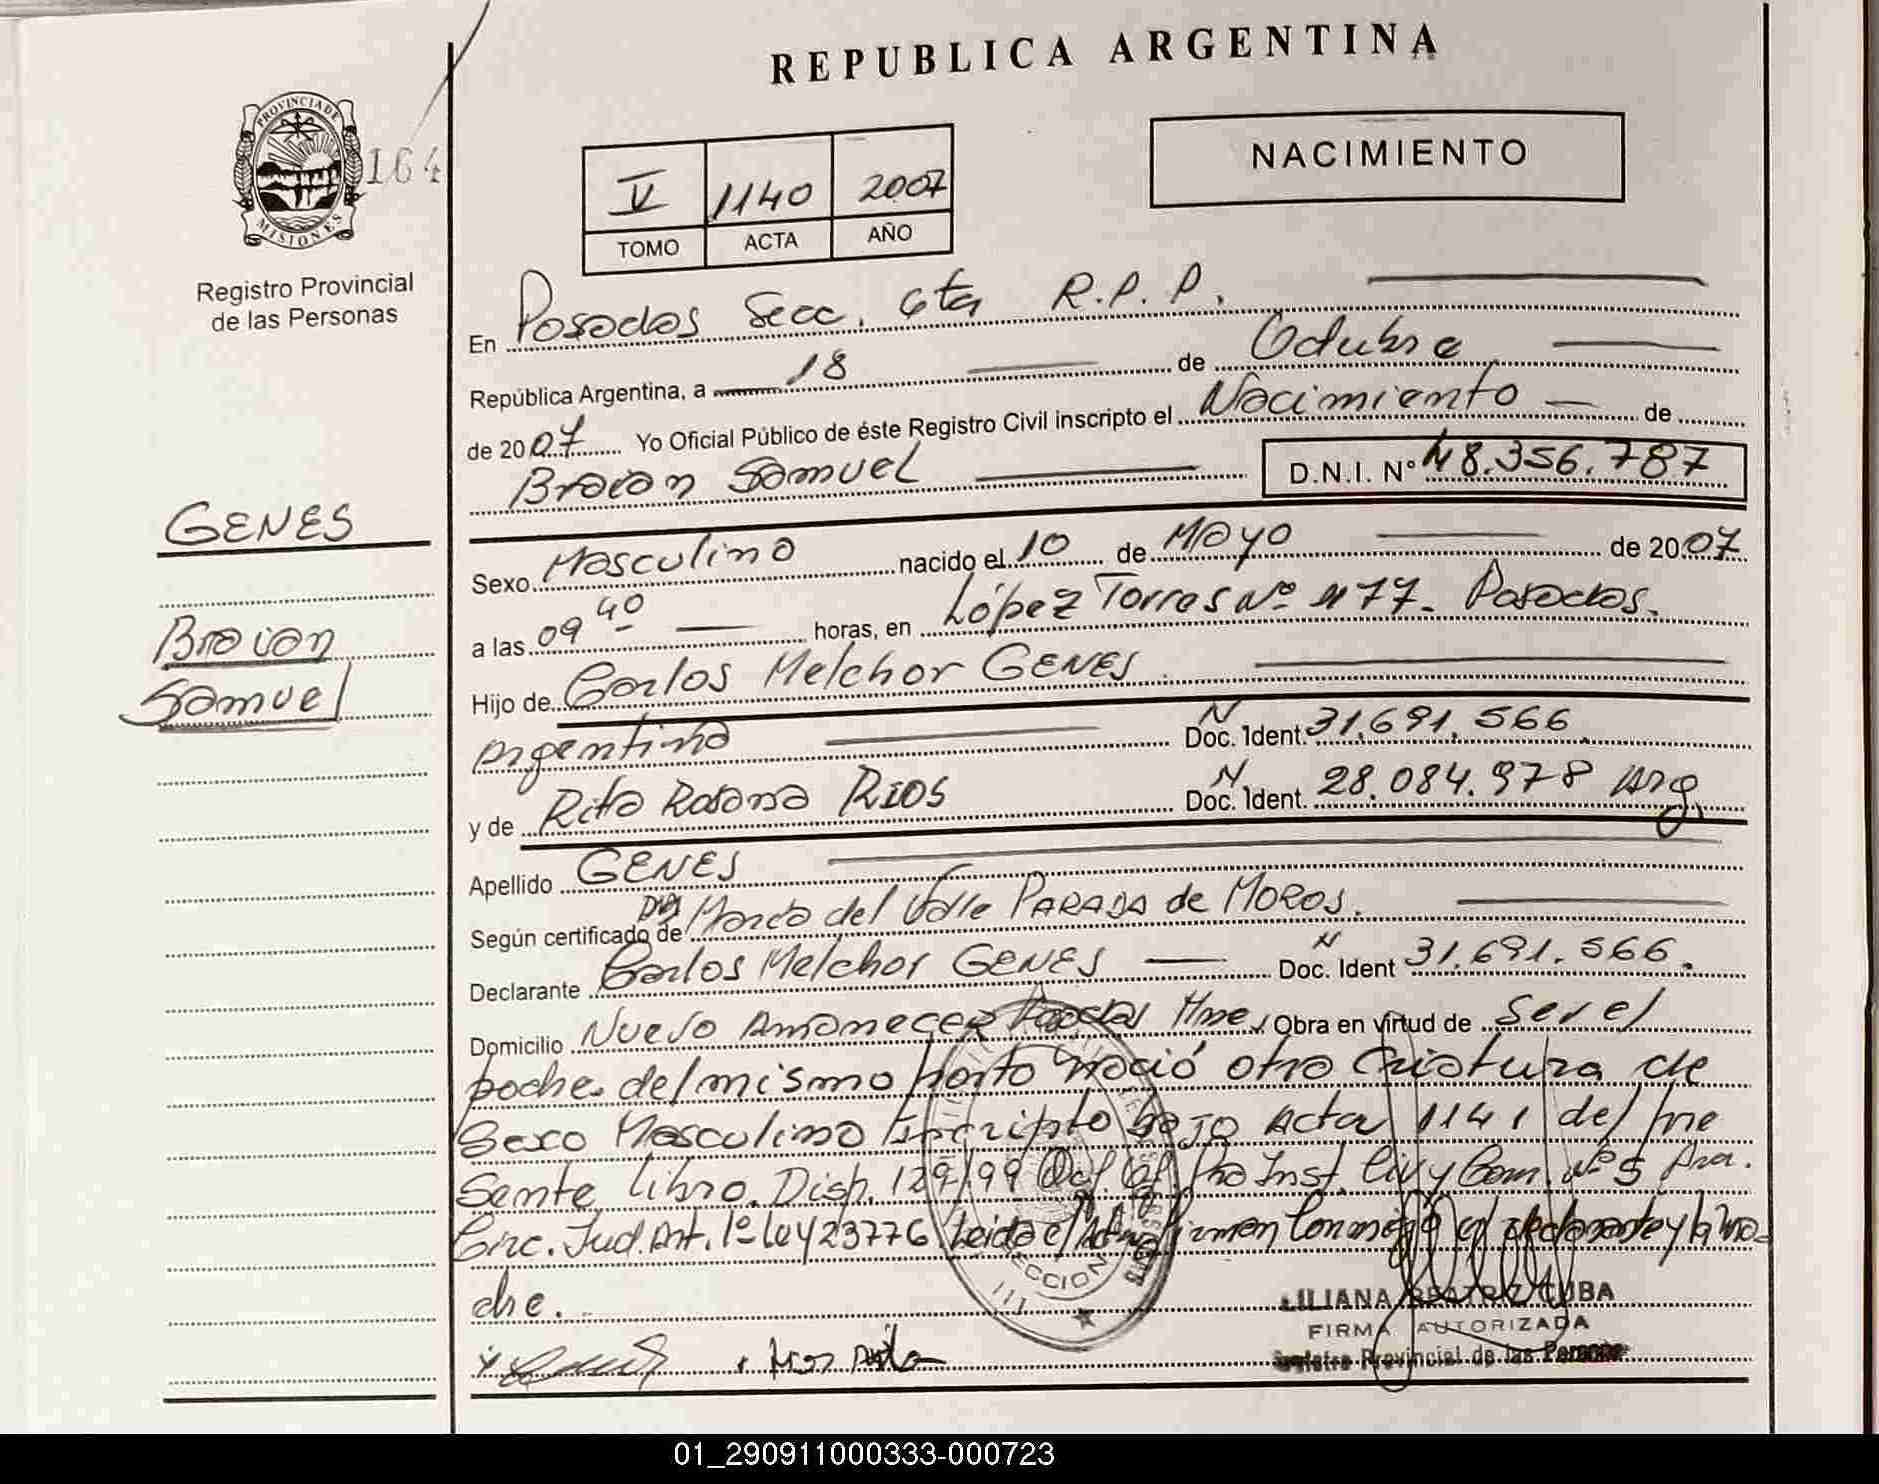 REPUBLICA ARGENTINA
PROVINCIA DE
MISIONES
164
Registro Provincial
de las Personas
V 1140 2007
TOMO ACTA AÑO
NACIMIENTO
En Posadas Secc. 6ta R.P.P.
República Argentina, a 18 de Octubre
de 2007 Yo Oficial Público de éste Registro Civil inscripto el Nacimiento de
Braian Samuel D.N.I. Nº 48.356.787
GENES
Braian
Samuel
Sexo Masculino nacido el 10 de Mayo de 2007
a las 09 40 horas, en López Torres Nº 1177. Posadas.
Hijo de Carlos Melchor GENES
Argentino Doc. Ident. N 31.691.566
y de Rita Rosana RIOS Doc. Ident. N 28.084.978 Arg.
Apellido GENES
Según certificado de María del Valle PARADA de MOROS.
Declarante Carlos Melchor GENES Doc. Ident N 31.691.566.
Domicilio Nuevo Amanecer Posadas Mnes Obra en virtud de Ser el
padre. del mismo parto nació otra Criatura de
Sexo Masculino Inscripto bajo Acta 1141 del pre
Sente libro. Disp. 129/99 Inst. Civ y Com. Nº 5 Pra.
Circ. Jud. Art. 1º Ley 23776. Leida el Acta firman Conmigo el declarante y la ma-
dre.
SECCION
LILIANA BEATRIZ CUBA
FIRMA AUTORIZADA
Registro Provincial de las Personas
01_290911000333-000723